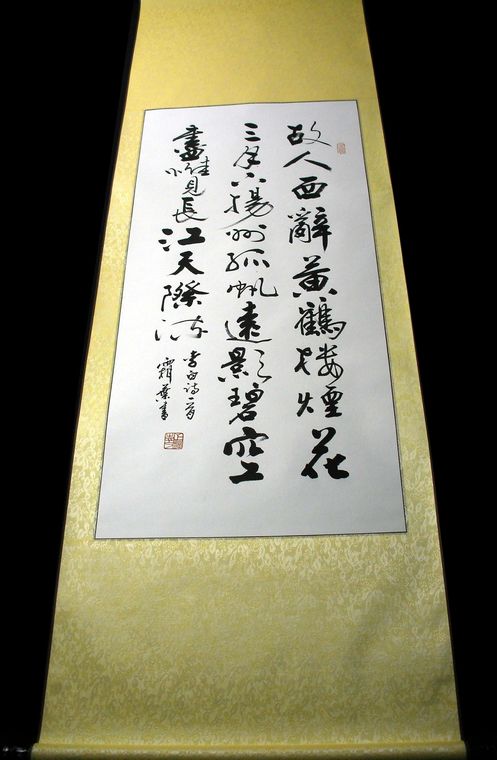 故人西辭黃鶴樓煙花
三月下揚州孤帆遠影碧空
盡惟見長江天際流
李白詩一首
霜葉書